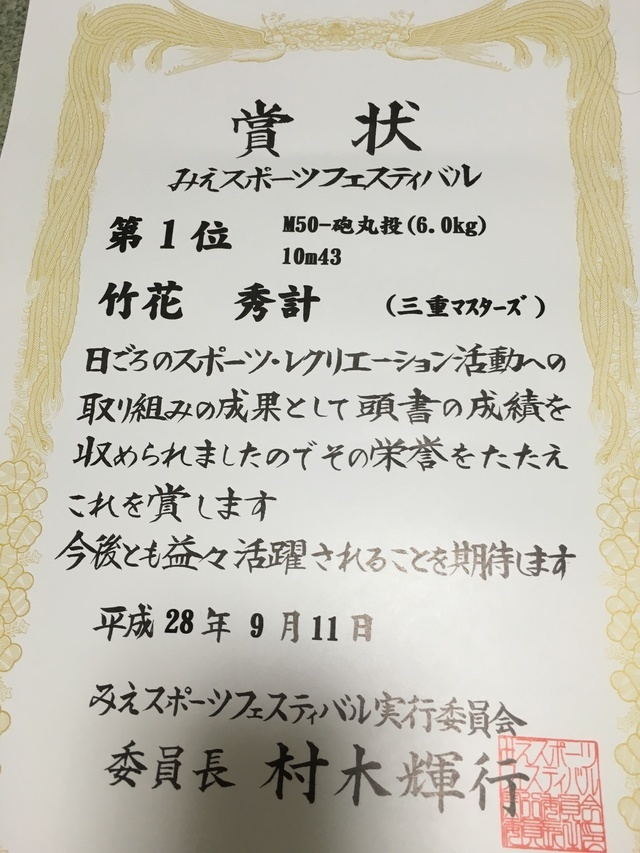 賞状
みえスポーツフェスティバル
第1位 M50-砲丸投(6.0kg)
10m43
竹花 秀計 (三重マスターズ)
日ごろのスポーツ・レクリエーション活動への
取り組みの成果として頭書の成績を
収められましたのでその栄誉をたたえ
これを賞します
今後とも益々活躍されることを期待します
平成28年9月11日
みえスポーツフェスティバル実行委員会
委員長 村木輝行